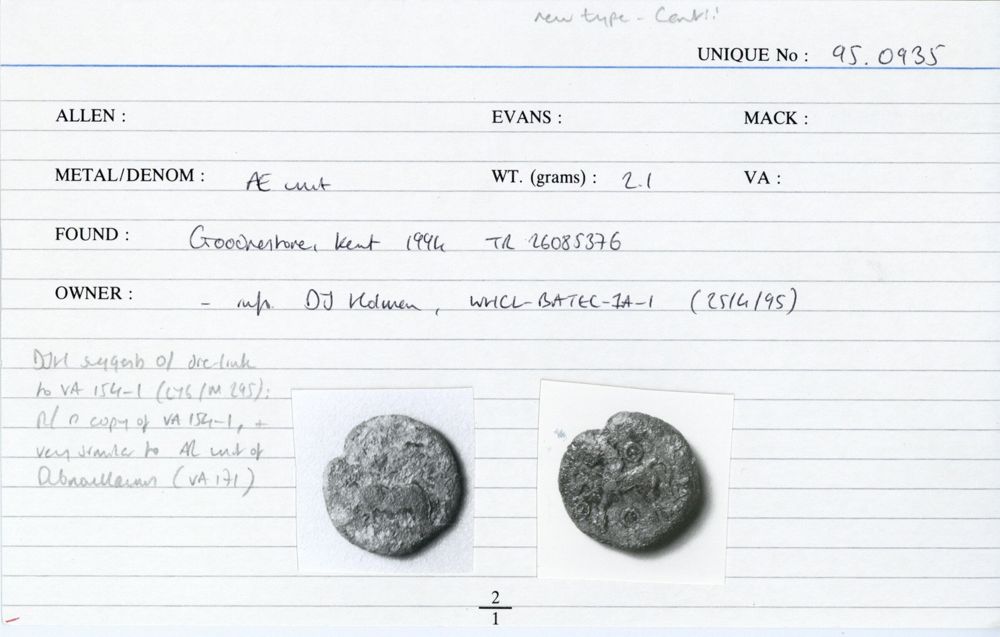 new type - Cantii
UNIQUE No : 95.0935
ALLEN : EVANS : MACK :
METAL/DENOM : Æ unit WT. (grams) : 2.1 VA :
FOUND : Goodnestone, Kent 1994 TR 26085376
OWNER : - info. DJ Holman, WHCL-BATEC-IA-1 (25/4/95)
DJH suggests O/ die-link
to VA 154-1 (LY6/M 295);
R/ a copy of VA 154-1, +
very similar to AR unit of
(VA 171)
2
1